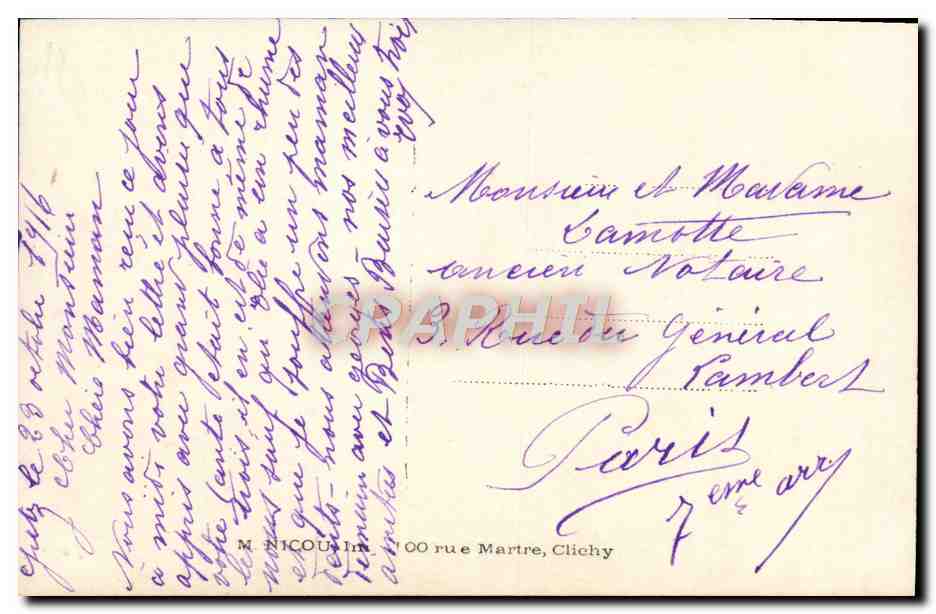 le 23 octobre 1916
Cher Monsieur
Chère Maman
Nous avons bien reçu ce jour
à midi votre lettre et avons
appris avec grand plaisir que
votre santé était bonne à tous
les trois il en est de même de
nous sauf qu'elle a un rhume
et que je souffre un peu des
dents - nous aurons maman
demain avec nos meilleurs
amitiés et Bons Baisers à vous trois
Monsieur et Madame
Lamotte
ancien Notaire
3. Rue du Général
Lambert
Paris
7eme arr
M. NICOU Im 100 rue Martre, Clichy
CPAPHIL